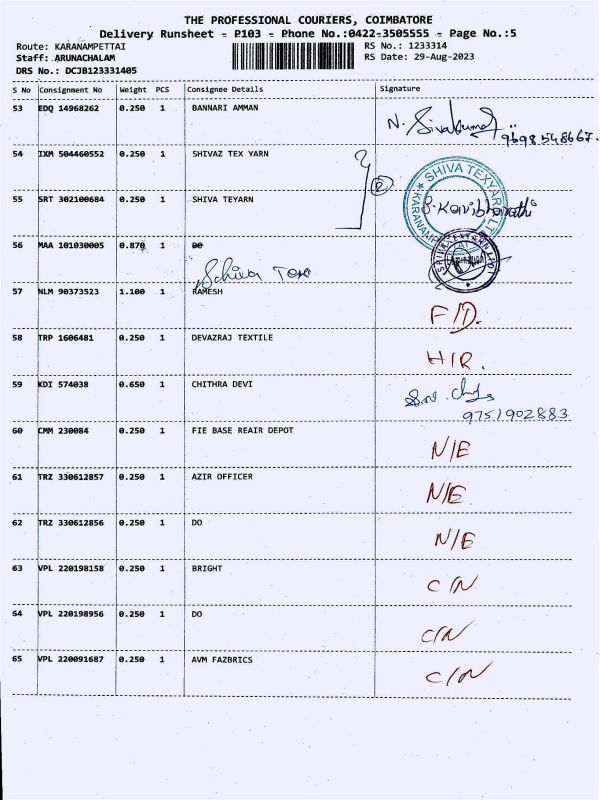 THE PROFESSIONAL COURIERS, COIMBATORE
Delivery Runsheet - P103 - Phone No.:0422-3505555 - Page No.:5
Route: KARANAMPETTAI RS No.: 1233314
Staff: ARUNACHALAM RS Date: 29-Aug-2023
DRS No.: DCJB123331405
S No Consignment No Weight PCS Consignee Details Signature
53 EDQ 14968262 0.250 1 BANNARI AMMAN N. Sivakumar
9698548667.
54 IXM 504460552 0.250 1 SHIVAZ TEX YARN
SHIVA TEXYARN LTD
55 SRT 302100684 0.250 1 SHIVA TEYARN
KARANAM
56 MAA 101030005 0.870 1 DO
Shiva Tex
57 NLM 90373523 1.100 1 RAMESH F/D.
58 TRP 1606481 0.250 1 DEVAZRAJ TEXTILE H/R.
59 KDI 574038 0.650 1 CHITHRA DEVI
9751902883
60 CMM 230084 0.250 1 FIE BASE REAIR DEPOT N/E
61 TRZ 330612857 0.250 1 AZIR OFFICER N/E
62 TRZ 330612856 0.250 1 DO N/E
63 VPL 220198158 0.250 1 BRIGHT C/N
64 VPL 220198956 0.250 1 DO C/N
65 VPL 220091687 0.250 1 AVM FAZBRICS C/N